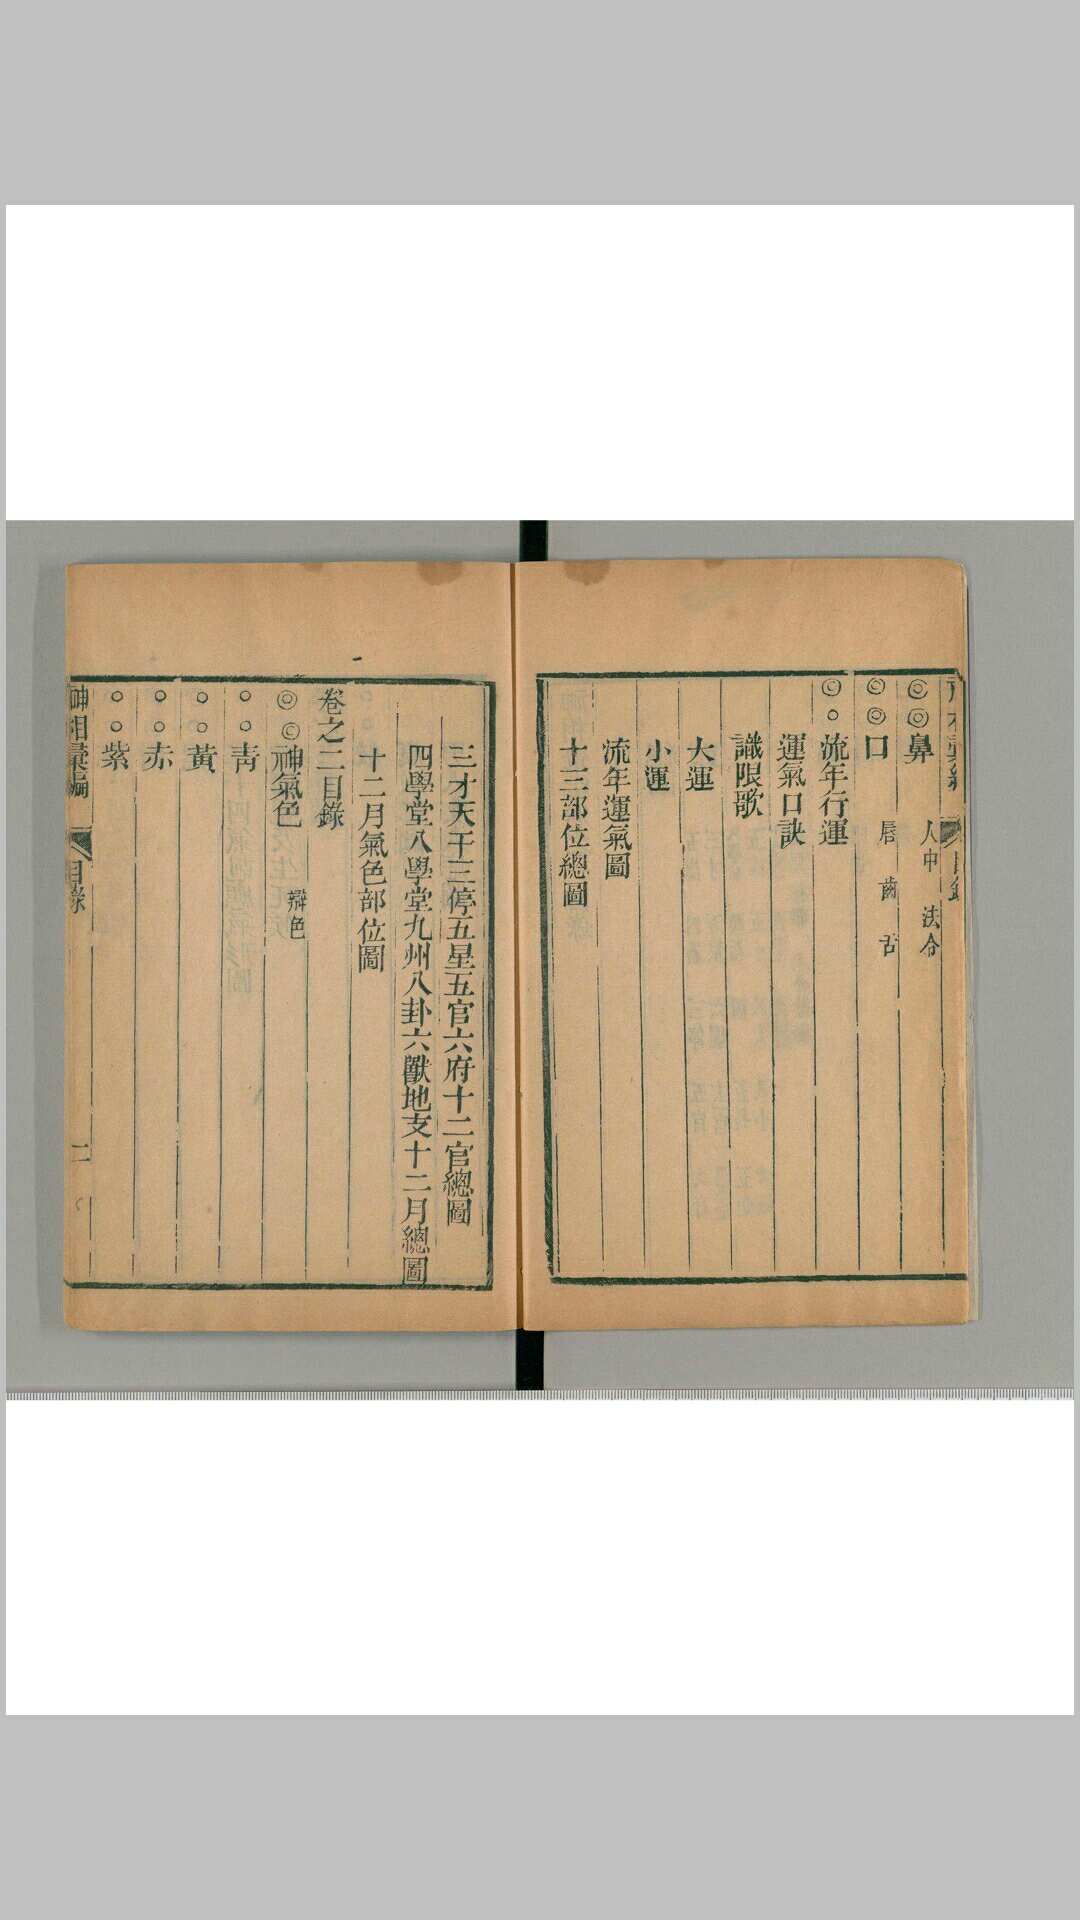 ◎◎鼻 人中 法令
◎◎口 唇 齒 舌
◎○流年行運
運氣口訣
識限歌
大運
小運
流年運氣圖
十三部位總圖
三才天干三停五星五官六府十二官總圖
四學堂八學堂九州八卦六獸地支十二月總圖
十二月氣色部位圖
卷之二目錄
◎◎神氣色 辯色
○○青
○○黃
○○赤
○○紫
神相彙編 目錄 二